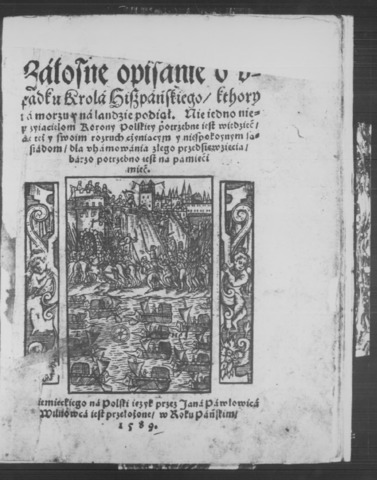 Záłosne opisanie v p-
adku Krolá Hiszpáńskiego/ kthory
ná morzu y ná landzie podiął. Nie iedno nie-
przyiacielom Korony Polskiey potrzebne iest wiedzieć/
ále też y swoim rozruch czyniącym y niespokoynym są-
siádom/ dla vhámowánia złego przedsięwzięcia/
bárzo potrzebno iest ná pámięci
mieć.
iemieckiego ná Polski ięzyk przez Janá Páwłowicá
Wilnowcá iest przełożone/ w Roku Páńskim/
1589.